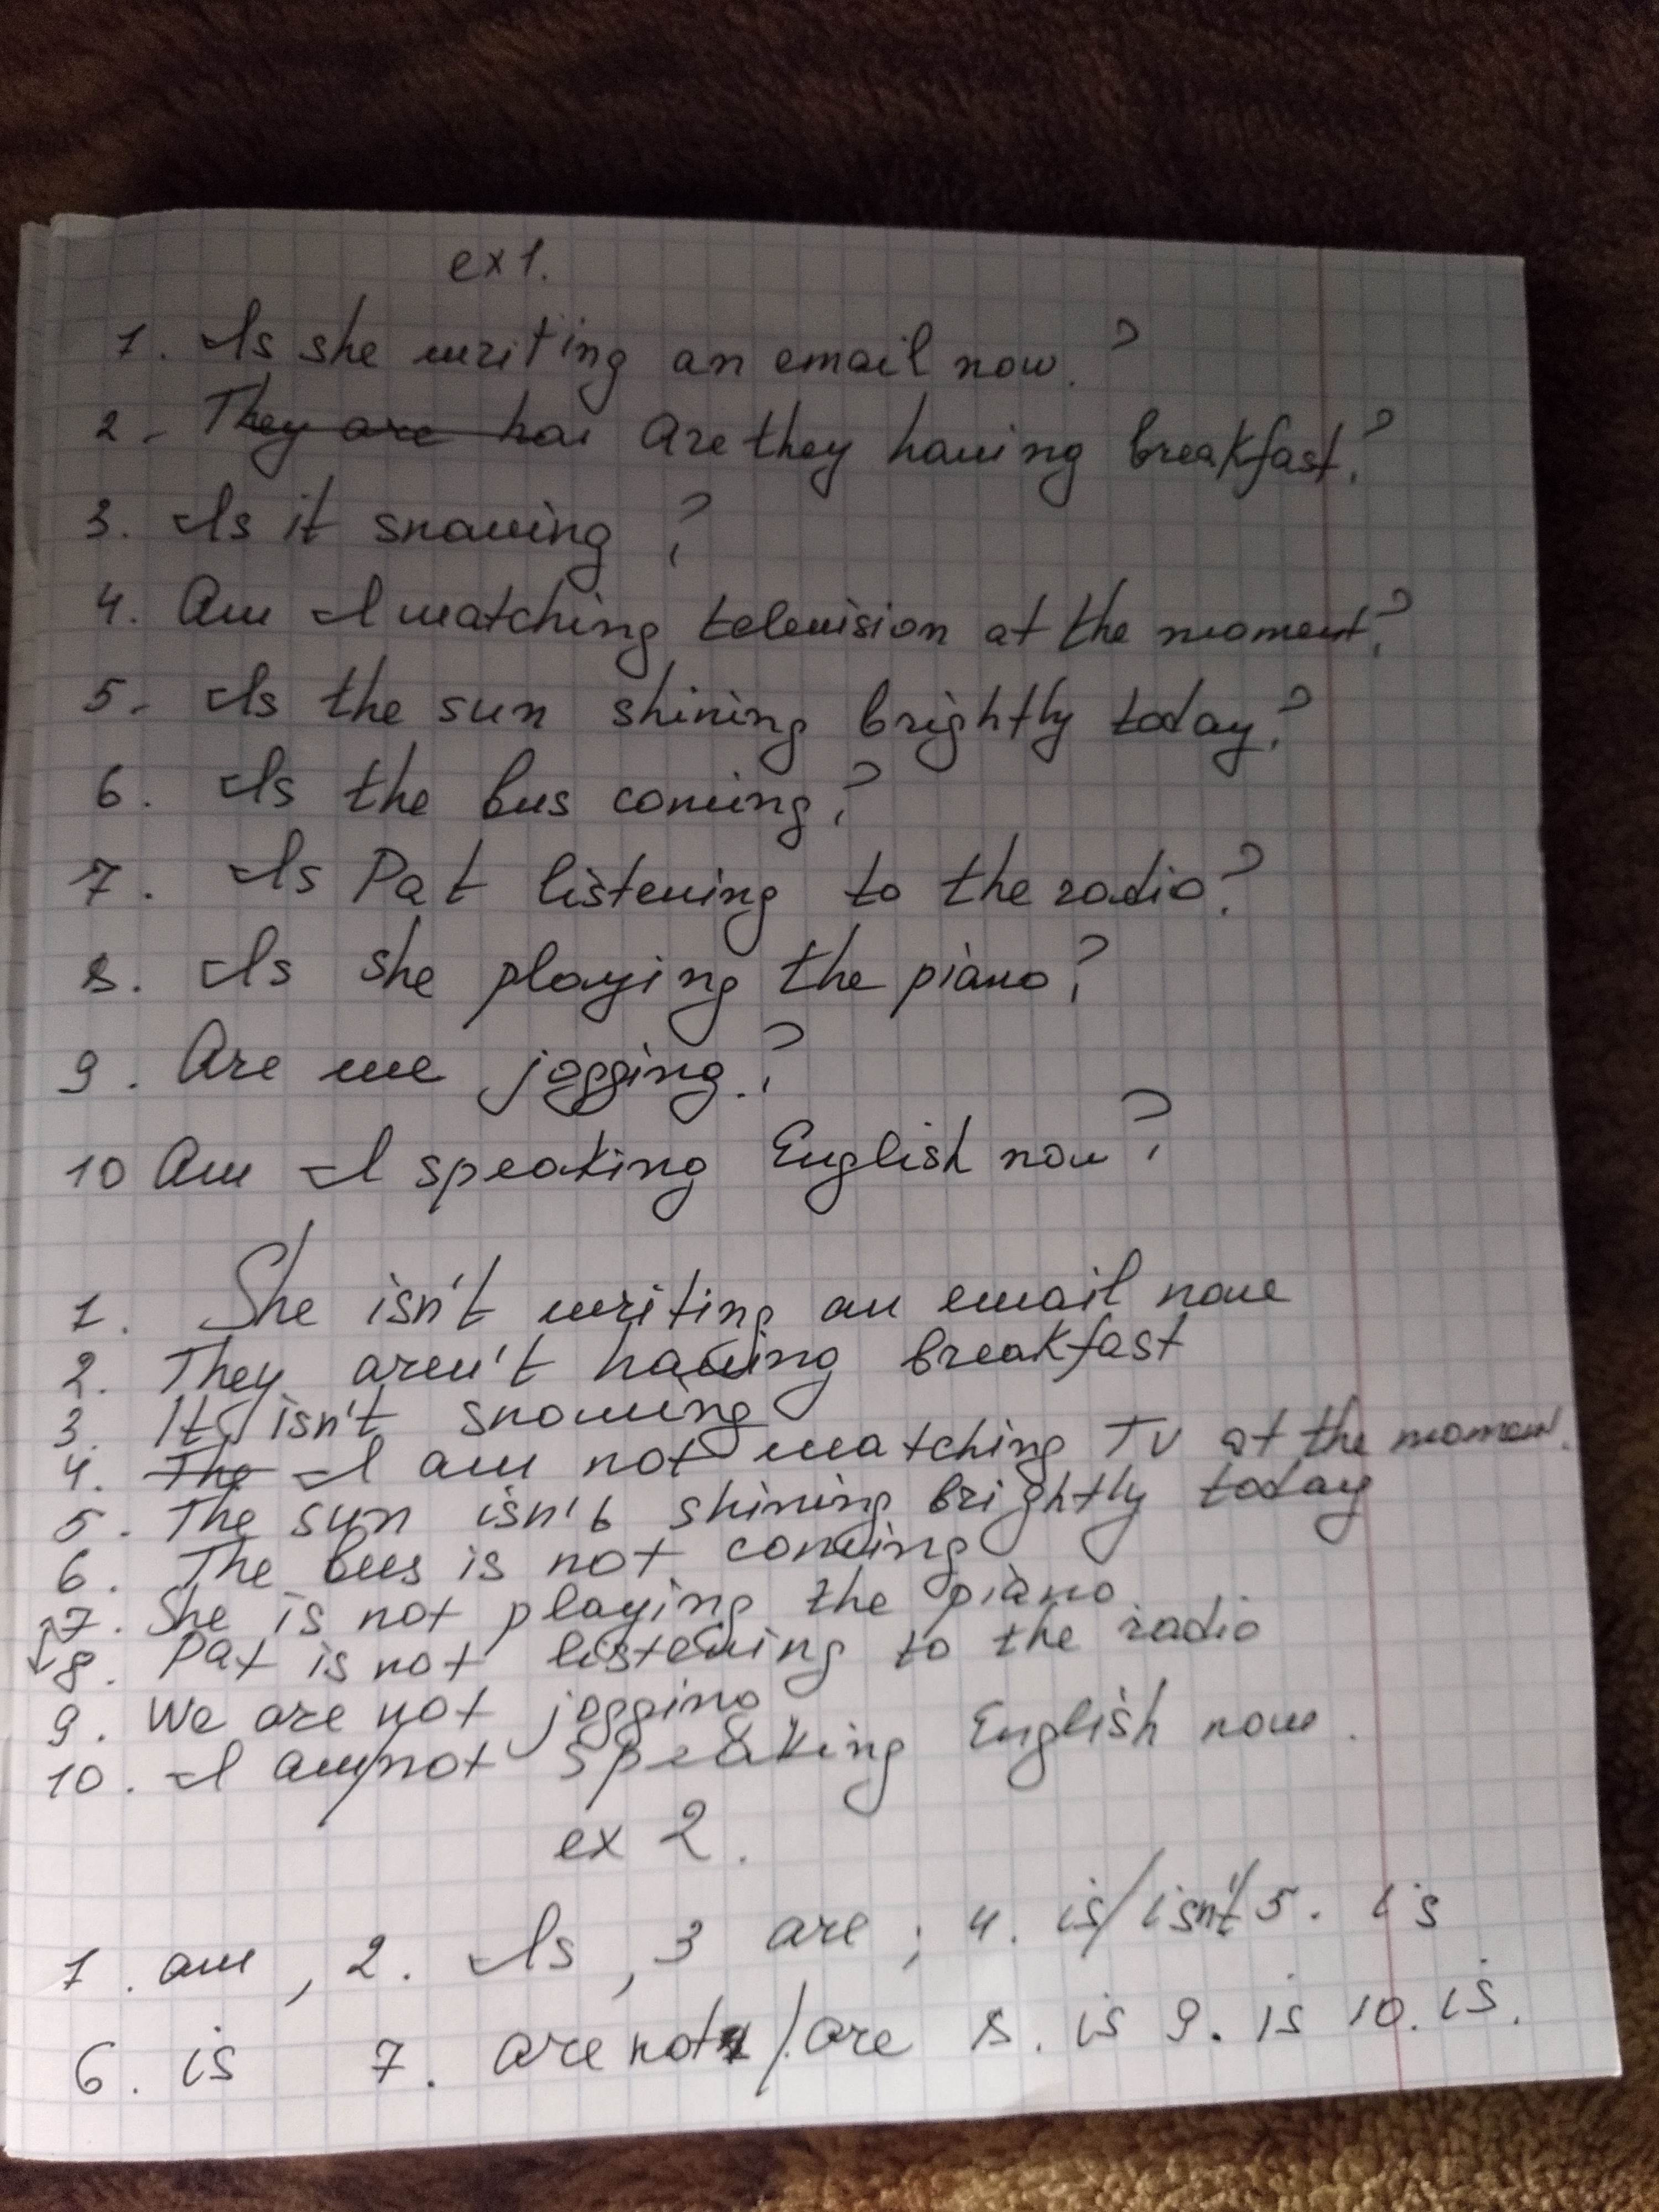 ex 1.
1. Is she writing an email now.?
2. They are hai Are they having breakfast?
3. Is it snowing?
4. Am I watching television at the moment?
5. Is the sun shining brightly today?
6. Is the bus coming?
7. Is Pat listening to the radio?
8. Is she playing the piano?
9. Are we jogging.?
10 Am I speaking English now?
1. She isn't writing an email now
2. They aren't having breakfast
3. It isn't snowing
4. The I am not watching TV at the moment.
5. The sun isn't shining brightly today
6. The bus is not coming
7. She is not playing the piano
8. Pat is not listening to the radio
9. We are not jogging
10. I am/not speaking English now.
ex 2.
1. am, 2. Is, 3 are; 4. is/isn't 5. is
6. is 7. are not/are 8. is 9. is 10. is.